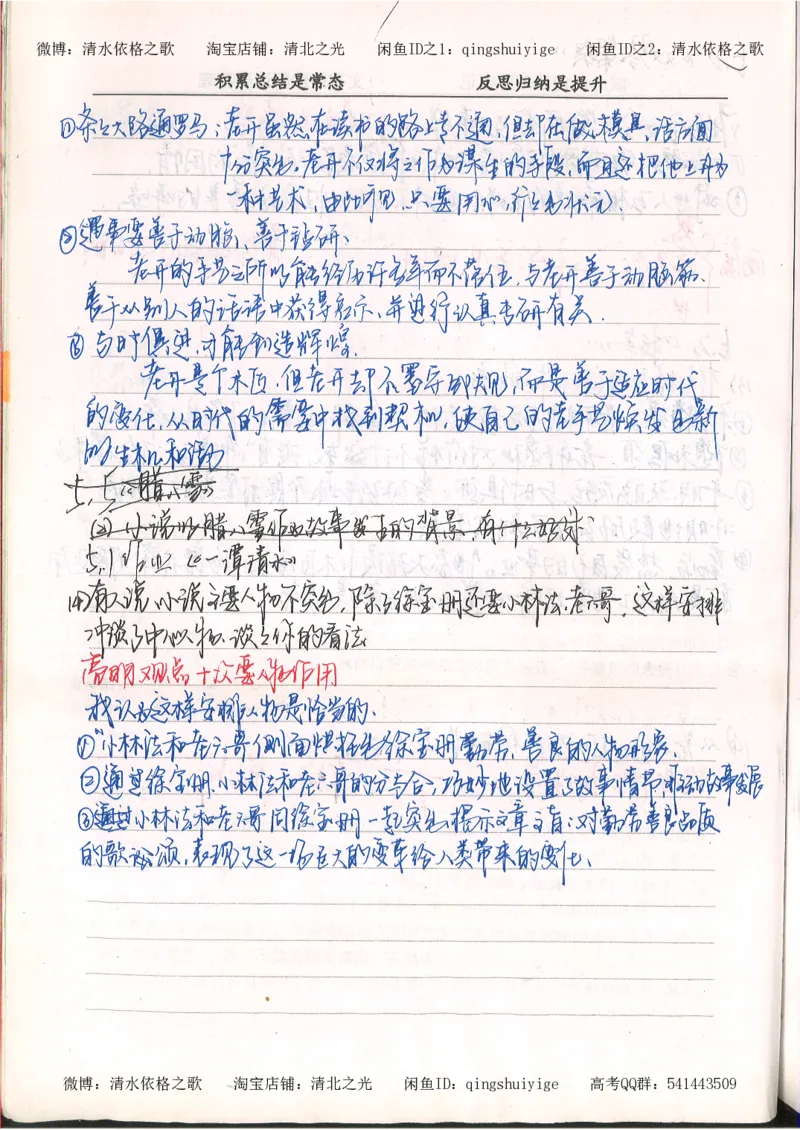 微博：清水依格之歌 淘宝店铺：清北之光 闲鱼ID之1：qingshuiyige 闲鱼ID之2：清水依格之歌
积累总结是常态 反思归纳是提升
①条条大路通罗马：老开虽然在读书的路上考不通，但却在做模具，方面
十分突出。老开不仅将之作为谋生的手段，而且还把他上升为
一种艺术，由此可见，只要用心，行行出状元
②遇事要善于动脑，善于钻研、
老开的手艺之所以能经历许多年而不落伍，与老开善于动脑筋、
善于从别人的话语中获得启示，并进行认真专研有关．
③ 与时俱进，才能创造辉煌．
老开是个木匠，但老开却不墨守成规，而是善于适应时代
的变化，从时代的需要中找到契机，使自己的老手艺焕发出新
的生机和活力
5，《腊八雪》
(2)小说以腊八雪作为故事发生的背景，有什么好处？
《一潭清水》
(4)有人说，小说主要人物不突出，除了徐宝册还要小林法，老六哥，这样安排
冲淡了中心人物，谈谈你的看法
亮明观点＋次要人物作用
我认为这样安排人物是恰当的．
①小林法和老六哥侧面烘托出徐宝册勤劳，善良的人物形象．
②通过徐宝册，小林法和老六哥的分与合，巧妙地设置了故事情节，推动故事发展
③通过小林法和老六哥同徐宝册一起突出揭示文章主旨：对勤劳善良品质
的歌颂，表现了这一场巨大的变革给人类带来的变化、
微博：清水依格之歌 淘宝店铺：清北之光 闲鱼ID：qingshuiyige 高考QQ群：541443509